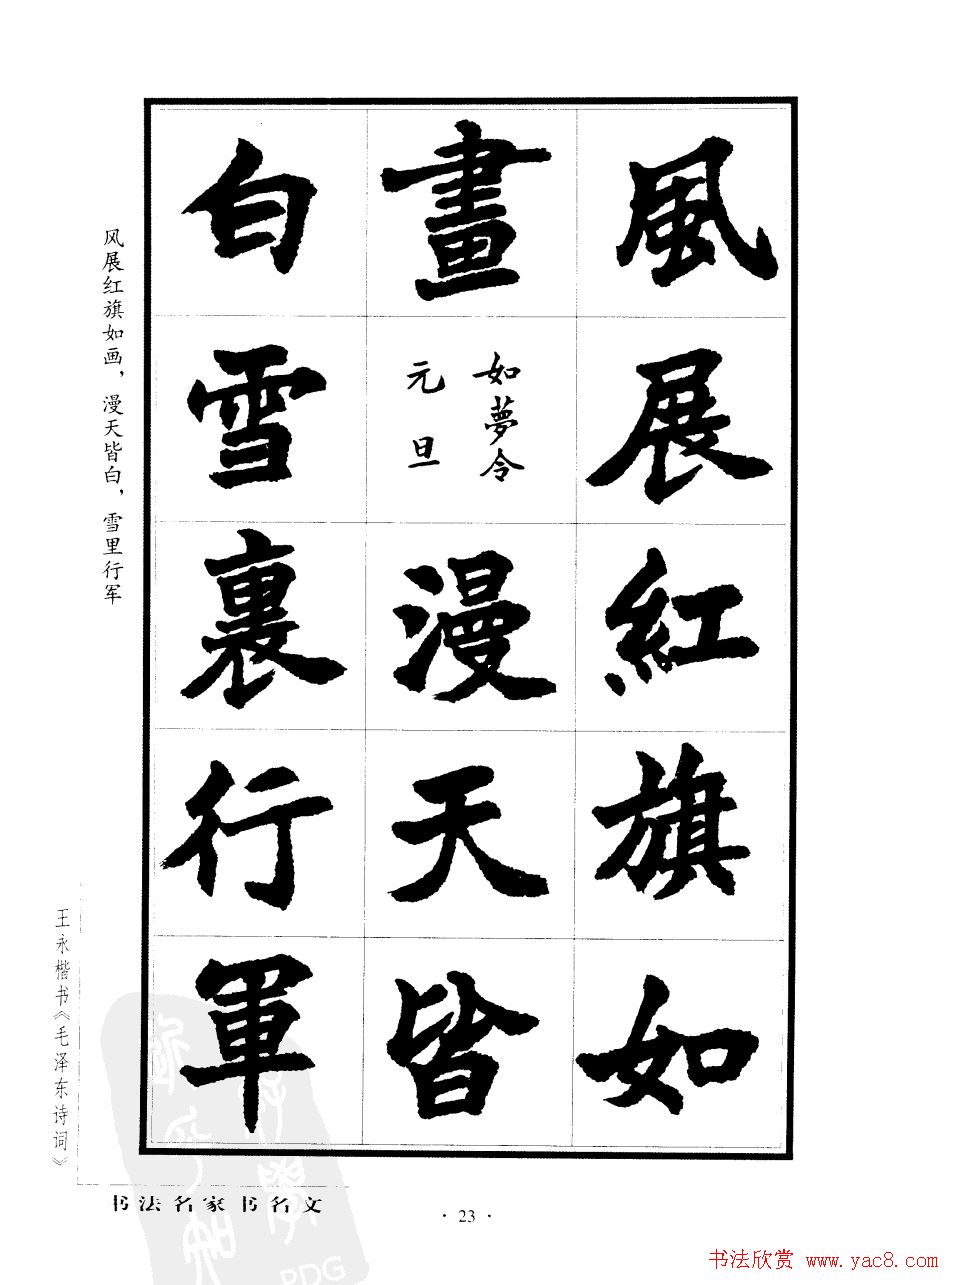 風展紅旗如
畫
如夢令
元旦
漫天皆
白雪裏行軍
风展红旗如画，漫天皆白，雪里行军
王永楷书《毛泽东诗词》
书法名家书名文
· 23 ·
书法欣赏 www.yac8.com
PDG